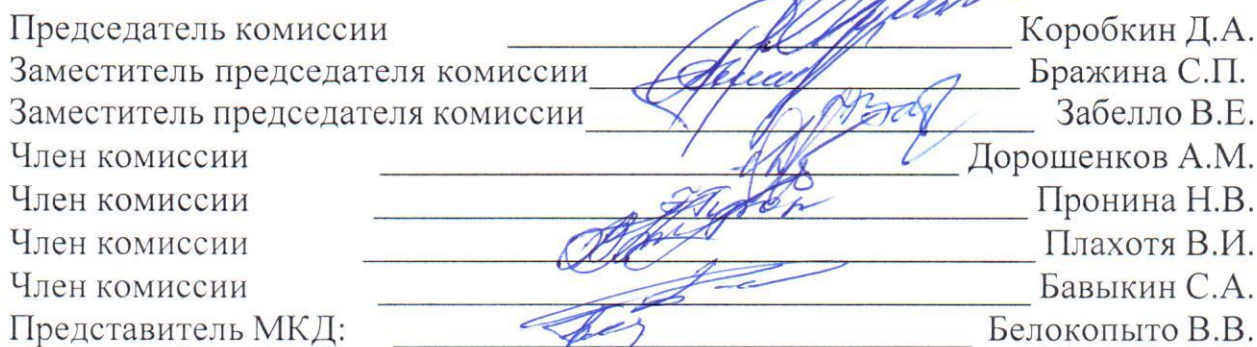 Председатель комиссии Коробкин Д.А.
Заместитель председателя комиссии Бражина С.П.
Заместитель председателя комиссии Забелло В.Е.
Член комиссии Дорошенков А.М.
Член комиссии Пронина Н.В.
Член комиссии Плахотя В.И.
Член комиссии Бавыкин С.А.
Представитель МКД: Белокопыто В.В.